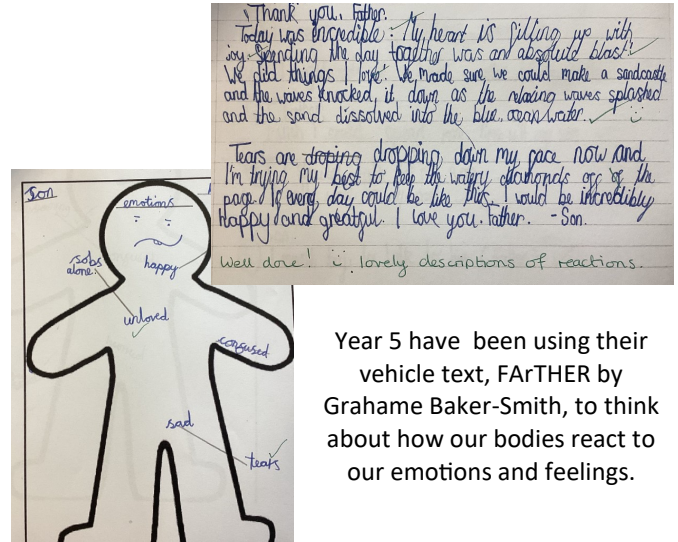 Thank you, Father.
Today was incredible. My heart is filling up with
joy. Spending the day together was an absolute blast!
We did things I love. We made sure we could make a sandcastle
and the waves knocked it down as the relaxing waves splashed
and the sand dissolved into the blue, ocean water.
Tears are droping dropping down my face now and
I'm trying my best to keep the watery diamonds off of the
page. If every day could be like this, I would be incredibly
happy and greatful. I love you, Father. -Son.
Well done! lovely descriptions of reactions.
Son
emotions
sobs
alone.
happy
unloved
confused
sad
tears
Year 5 have been using their
vehicle text, FArTHER by
Grahame Baker-Smith, to think
about how our bodies react to
our emotions and feelings.